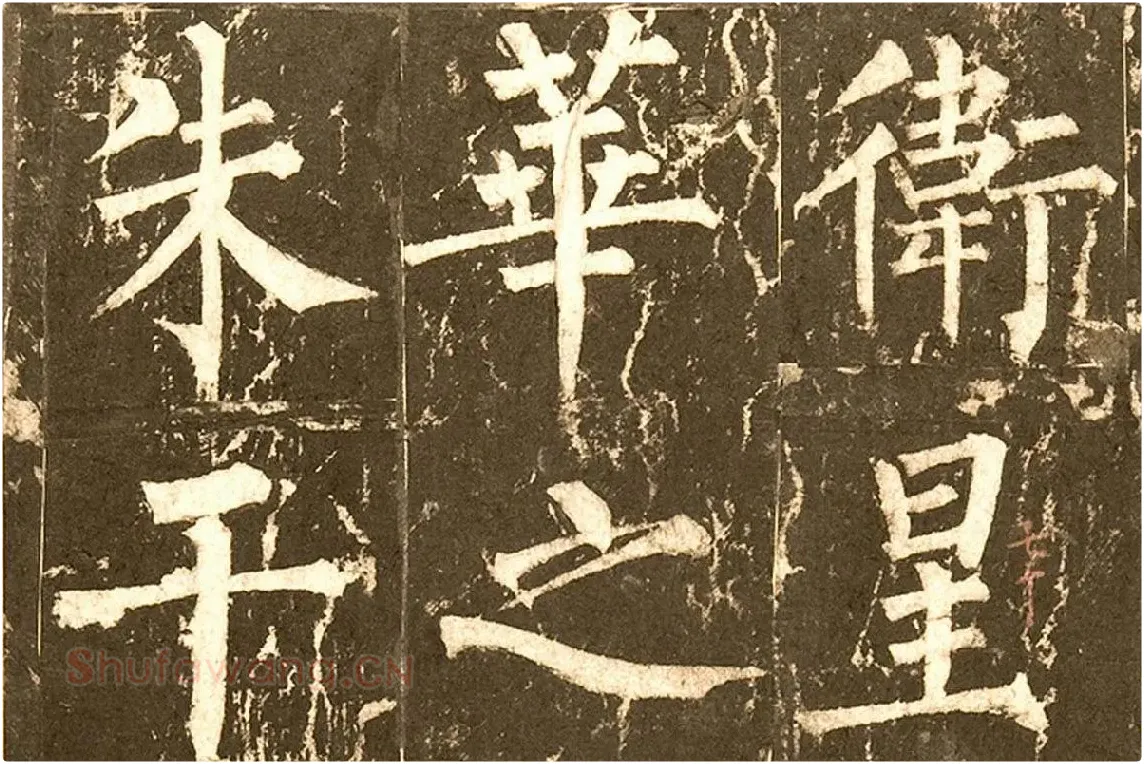 衛星
華之
朱干
Shufawang.CN